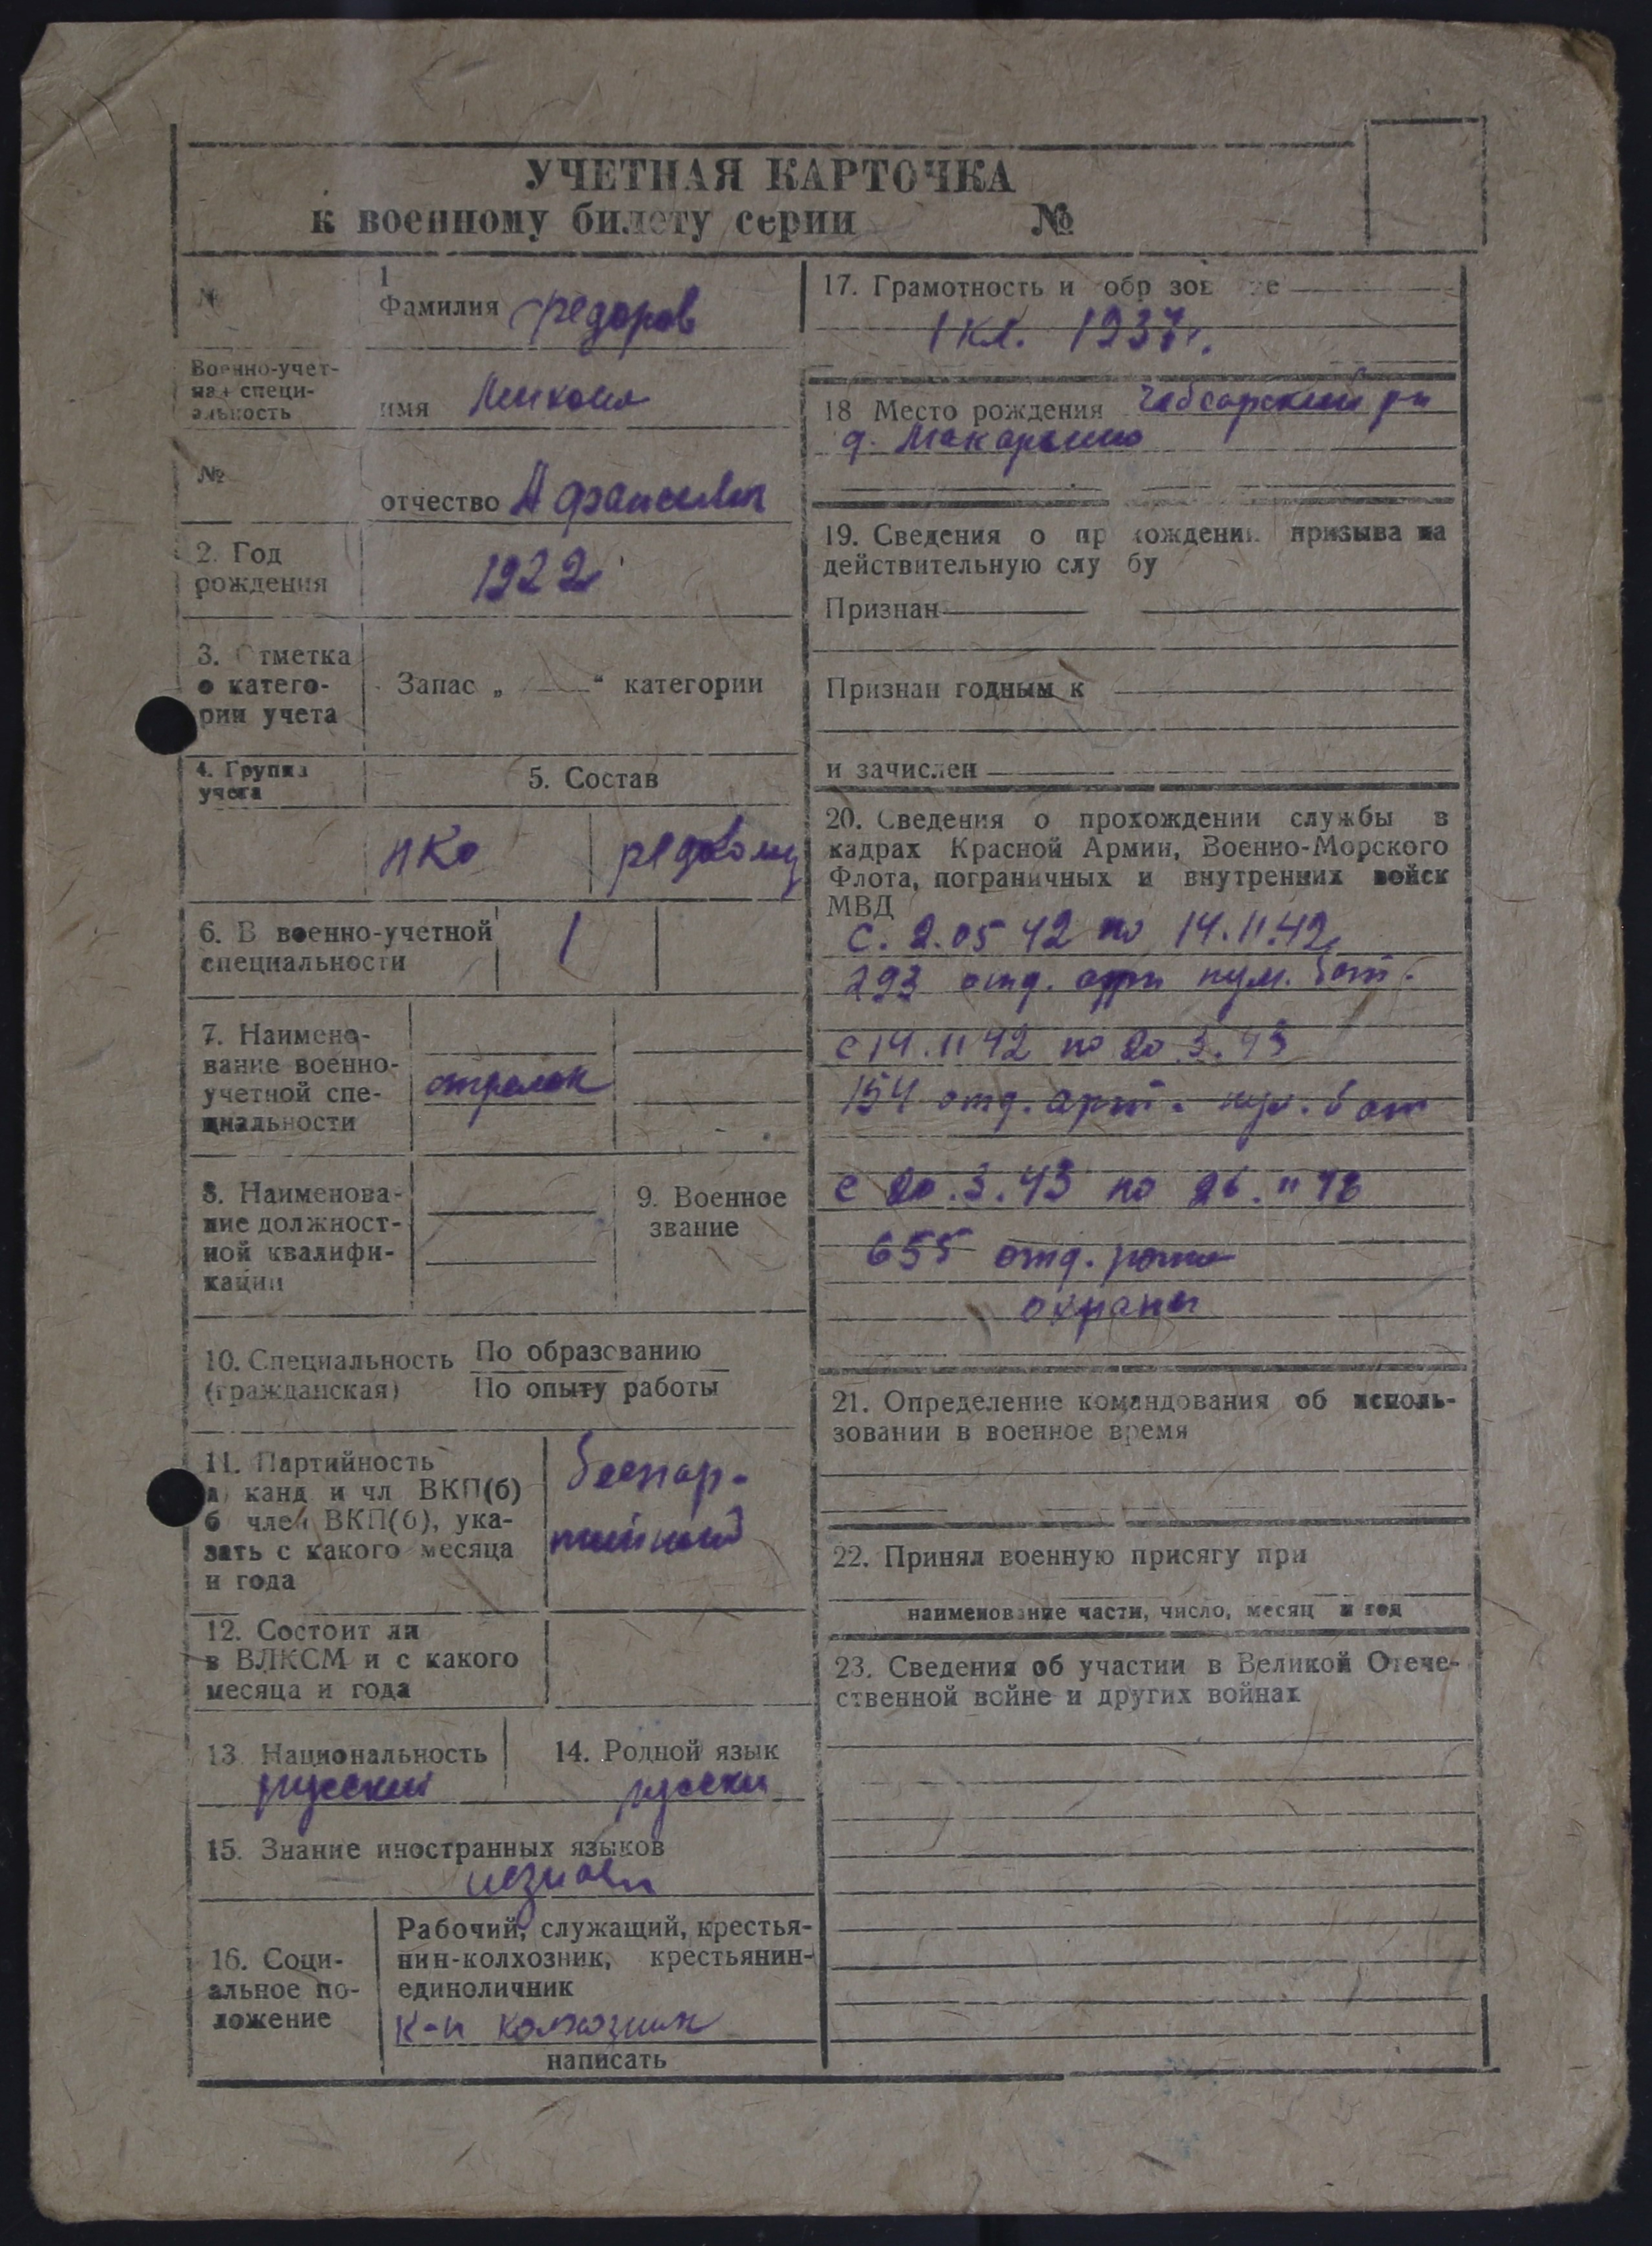 УЧЕТНАЯ КАРТОЧКА
к военному билету серии №
№
1
Фамилия Федоров
Военно-учет-
ная специ-
альность
имя
№
отчество
2. Год
рождения
1922
3. Отметка
о катего-
рии учета
Запас „ “ категории
4. Группа
учета
5. Состав
НКО
6. В военно-учетной
специальности
1
7. Наимено-
вание военно-
учетной спе-
циальности
стрелок
8. Наименова-
ние должност-
ной квалифи-
кации
9. Военное
звание
10. Специальность
(гражданская)
По образованию
По опыту работы
11. Партийность
а) канд и чл ВКП(б)
б член ВКП(б), ука-
зать с какого месяца
и года
беспар-
тийный
12. Состоит ли
в ВЛКСМ и с какого
месяца и года
13 Национальность
русский
14. Родной язык
русски
15. Знание иностранных языков
16. Соци-
альное по-
ложение
Рабочий, служащий, крестья-
нин-колхозник, крестьянин-
единоличник
к-н колхозник
написать
17. Грамотность и обр зов е
1 кл. 1937г.
18 Место рождения Чебсарский рн
д. Макарьино
19. Сведения о пр хождении призыва на
действительную слу бу
Признан
Признан годным к
и зачислен
20. Сведения о прохождении службы в
кадрах Красной Армии, Военно-Морского
Флота, пограничных и внутренних войск
МВД
с. 2.05 42 по 14.11.42
293 отд. арт пул. бат.
с 14.11 42 по 20.3.43
154 отд. арт. пул. бат
с 20.3.43 по 26.11
655 отд. рота
охраны
21. Определение командования об исполь-
зовании в военное время
22. Принял военную присягу при
наименование части, число, месяц и год
23. Сведения об участии в Великой Отече-
ственной войне и других войнах